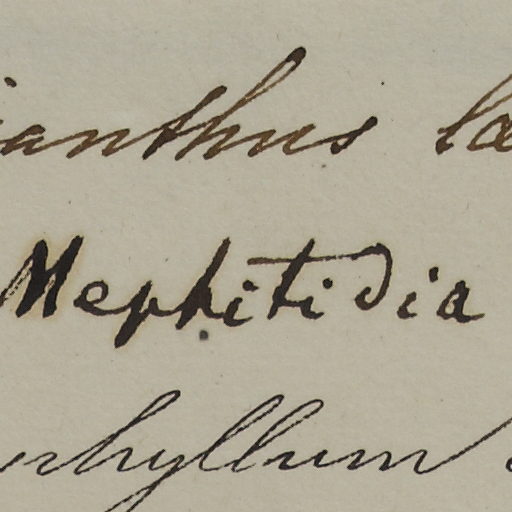 ianthus læ
Mephitidia
rhyllum